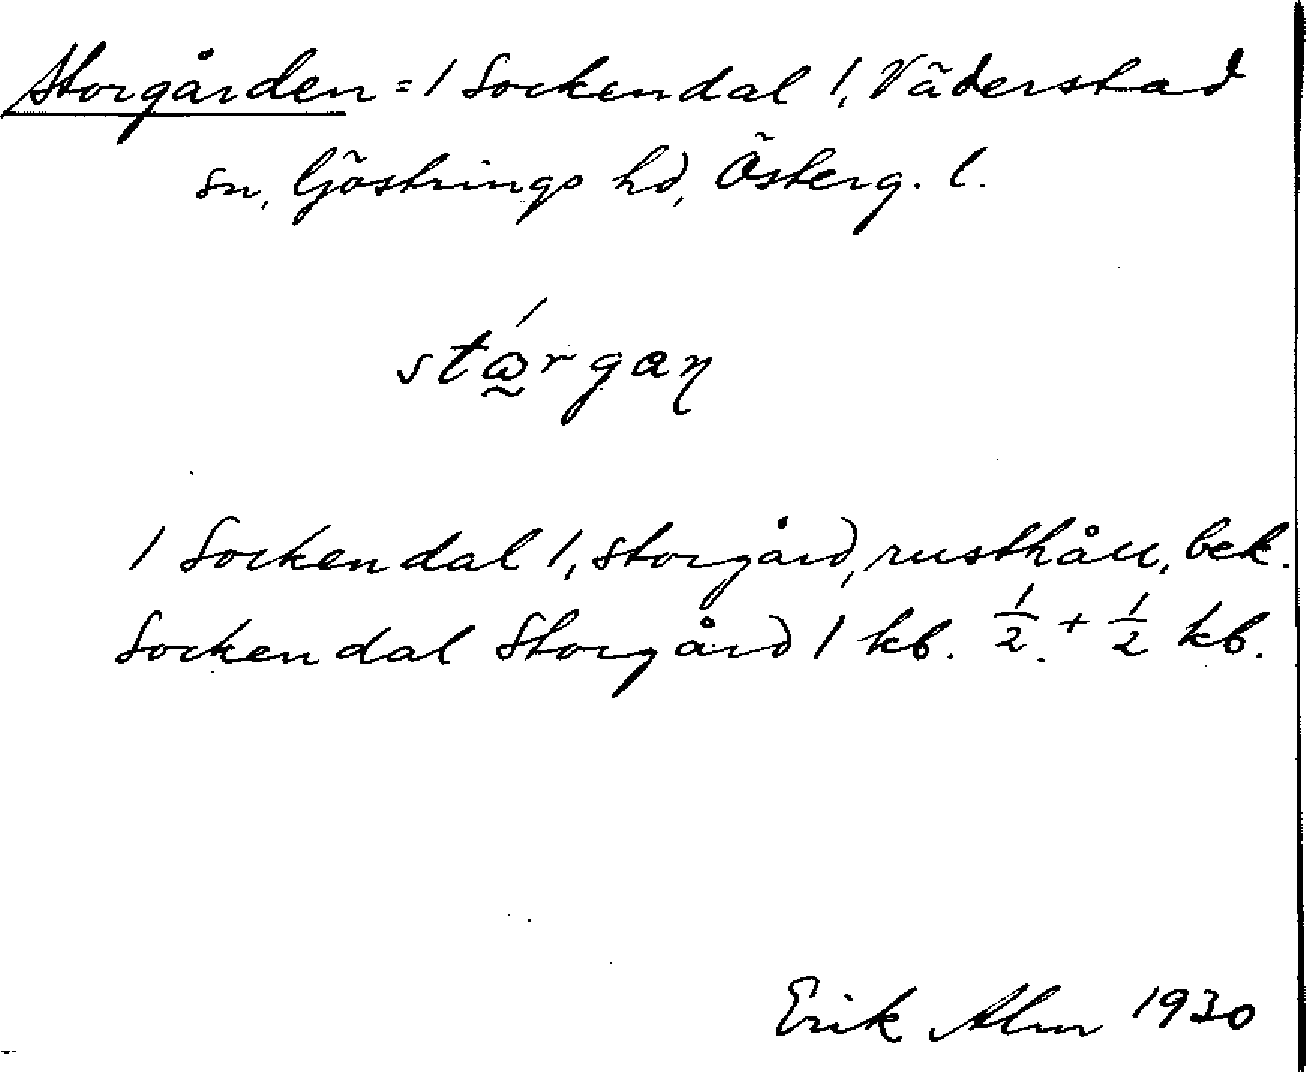 Storgården = 1 Sockendal 1, Väderstad
sn, Göstrings hd, Österg. l.
stǿrgaη
1 Sockendal 1, storgård, rusthåll, bek.
Sockendal Storgård 1 kb. ½ + ½ kb.
Erik Alm 1930